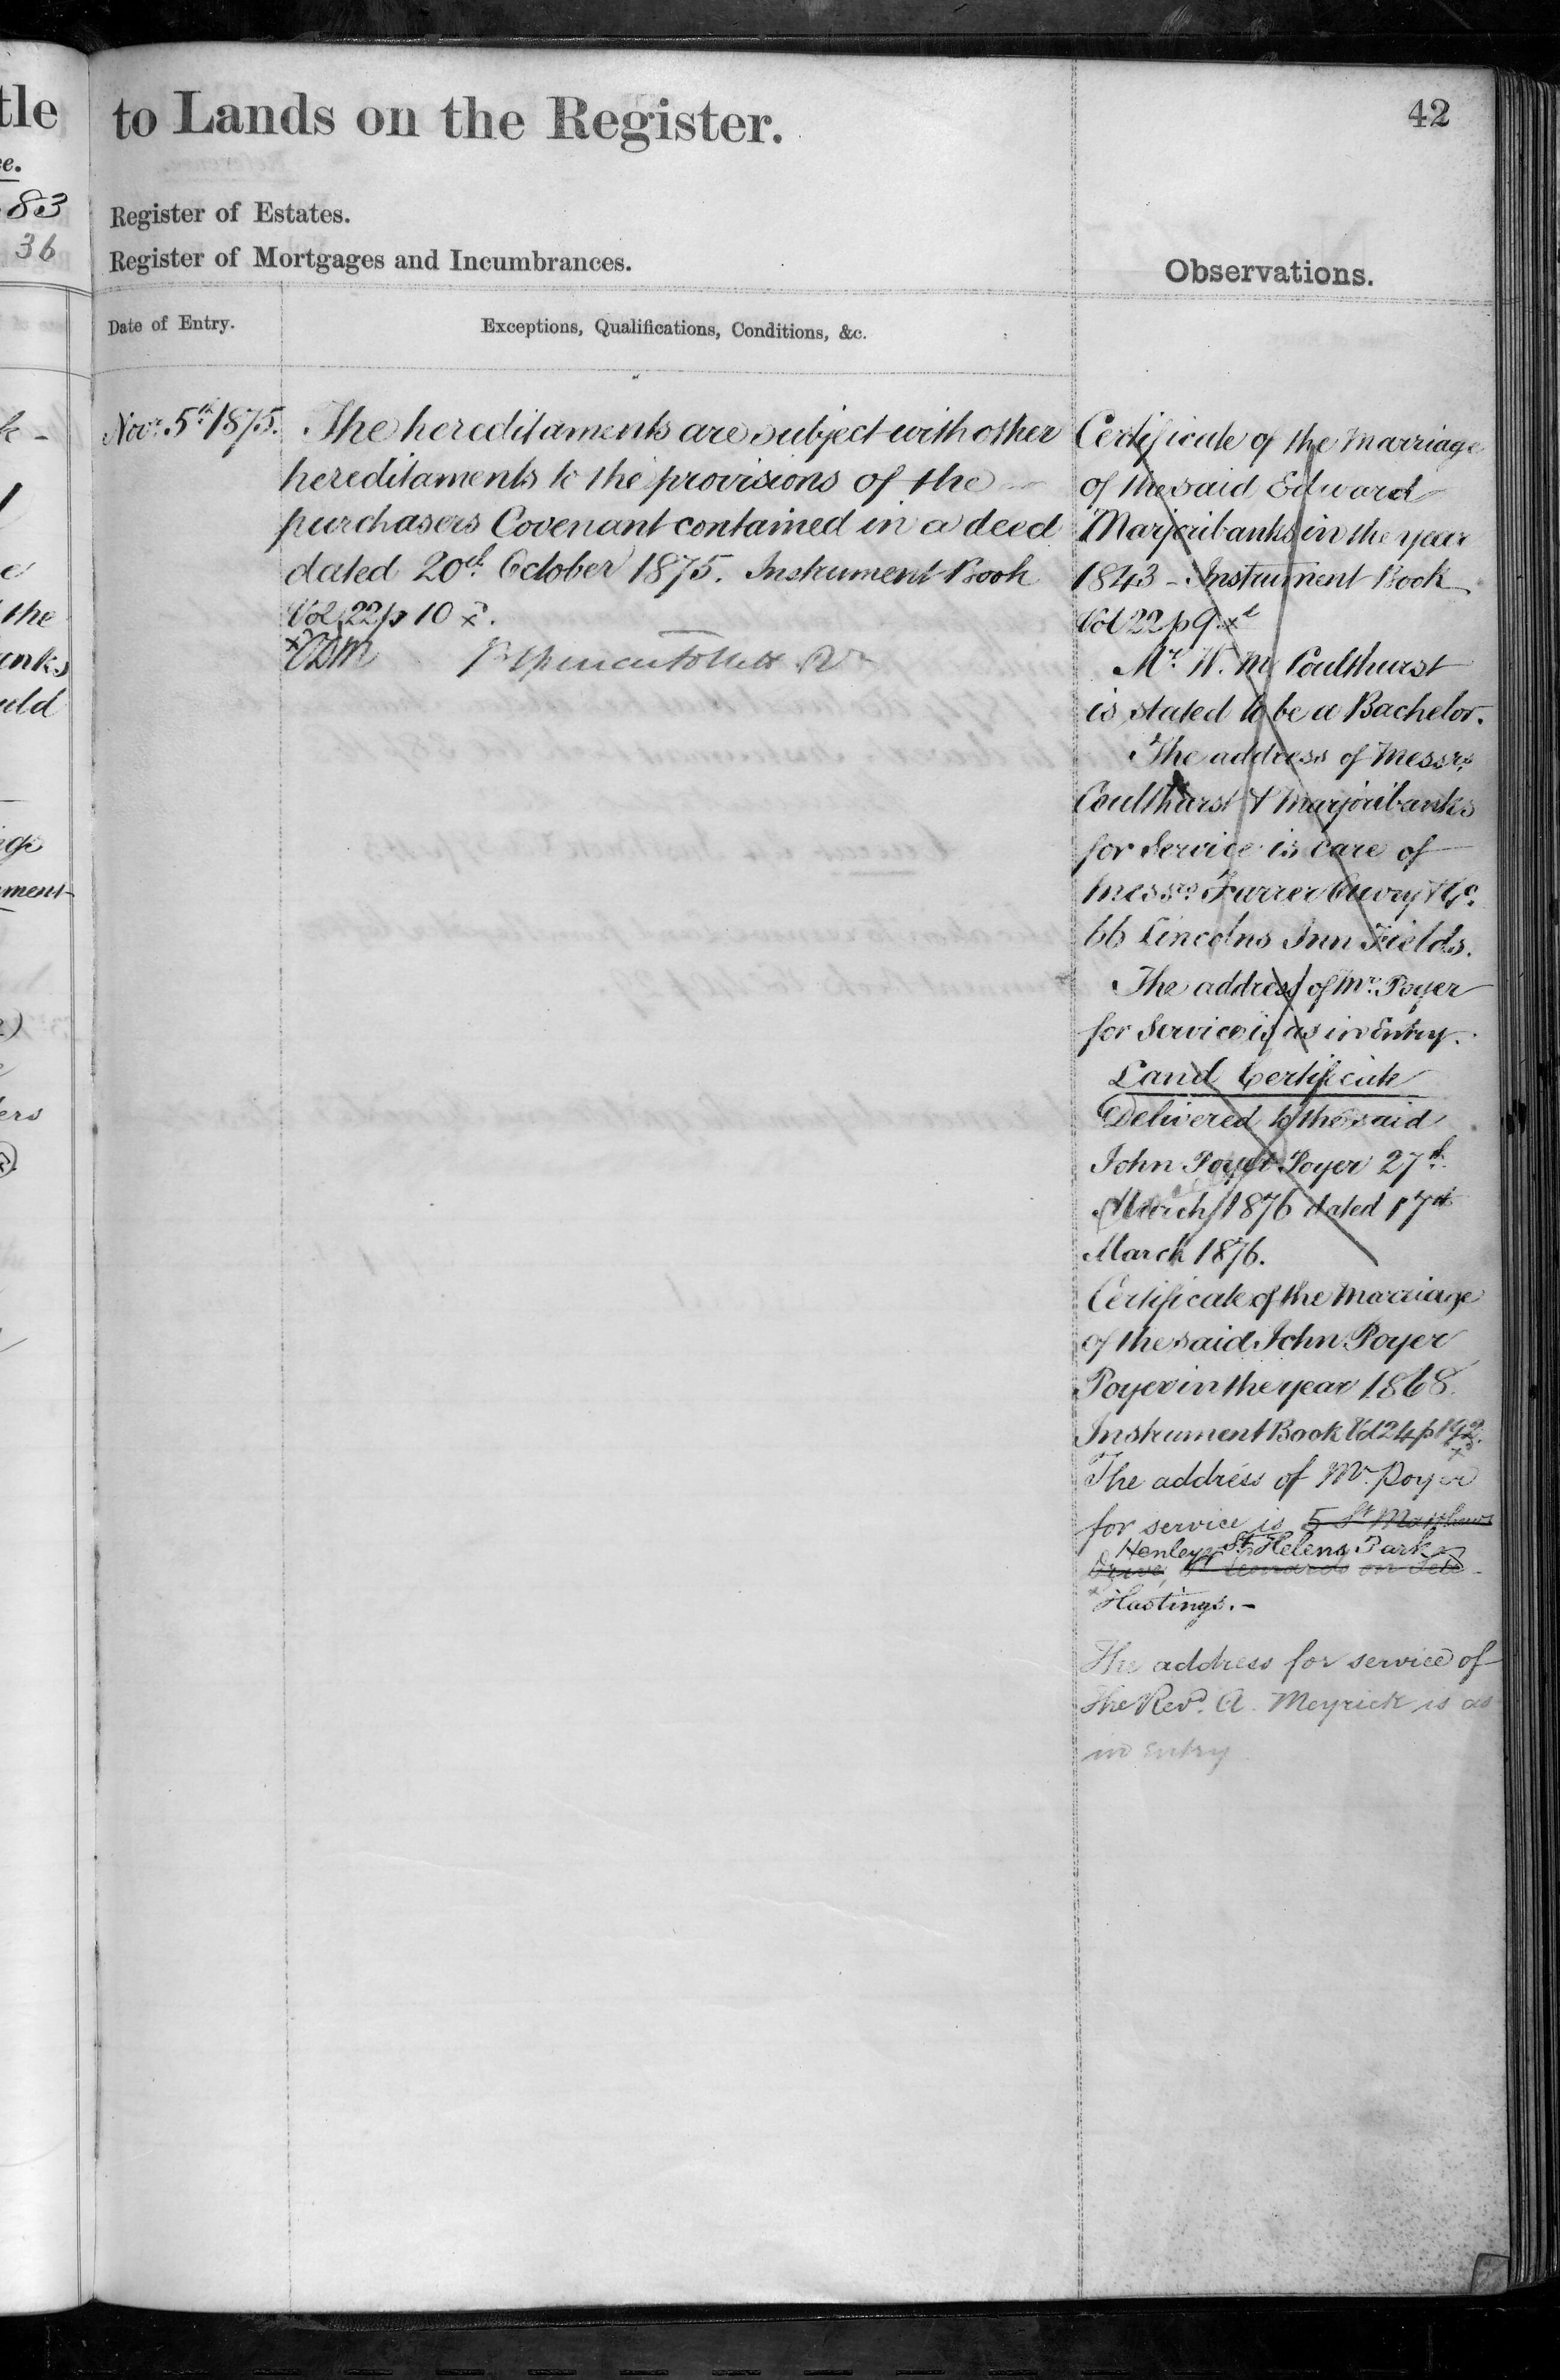 tle
ce.
83
36
the
anks
uld
ment
ers
to Lands on the Register.
42
Register of Estates.
Register of Mortgages and Incumbrances.
Observations.
Date of Entry.
Exceptions, Qualifications, Conditions, &c.
Novr. 5th 1875.
The hereditaments are subject with other
hereditaments to the provisions of the
purchasers Covenant contained in a deed
dated 20th October 1875. Instrument Book
Vol 22 p 10 x.
Certificate of the Marriage
of the said Edward
Marjoribanks in the year
1843 - Instrument Book
Vol 22 p 9 x
Mr. W. M. Coulthurst
is stated to be a Bachelor.
The address of Messrs.
Coulthurst & Marjoribanks
for Service is care of
Messrs. Farrer Ouvry & Co.
66 Lincolns Inn Fields.
The address of Mr. Poyer
for Service is as in Entry.
Land Certificate
Delivered to the said
John Poyer Poyer 27th
March 1876 dated 17th
March 1876.
Certificate of the Marriage
of the said John Poyer
Poyer in the year 1868.
Instrument Book Vol 24 p 192.
The address of Mr. Poyer
for service is 5 St Matthews
Henley St. Helens Park
Drive, St Leonards on Sea
Hastings. -
The address for service of
the Revd. A. Meyrick is as
in Entry